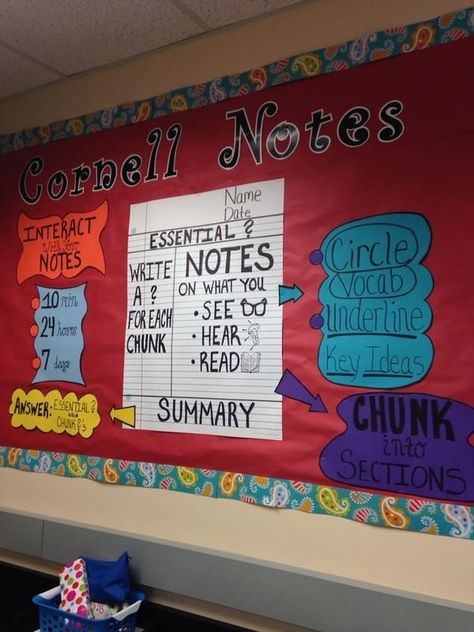 Cornell Notes
INTERACT
With Your
NOTES
10 min
24 hours
7 days
ANSWER: ESSENTIAL?
and
CHUNK?'s
Name
Date
ESSENTIAL ?
WRITE
A ?
FOR EACH
CHUNK
NOTES
ON WHAT YOU
• SEE
• HEAR
• READ
SUMMARY
Circle
Vocab
Underline
Key Ideas
CHUNK
into
SECTIONS